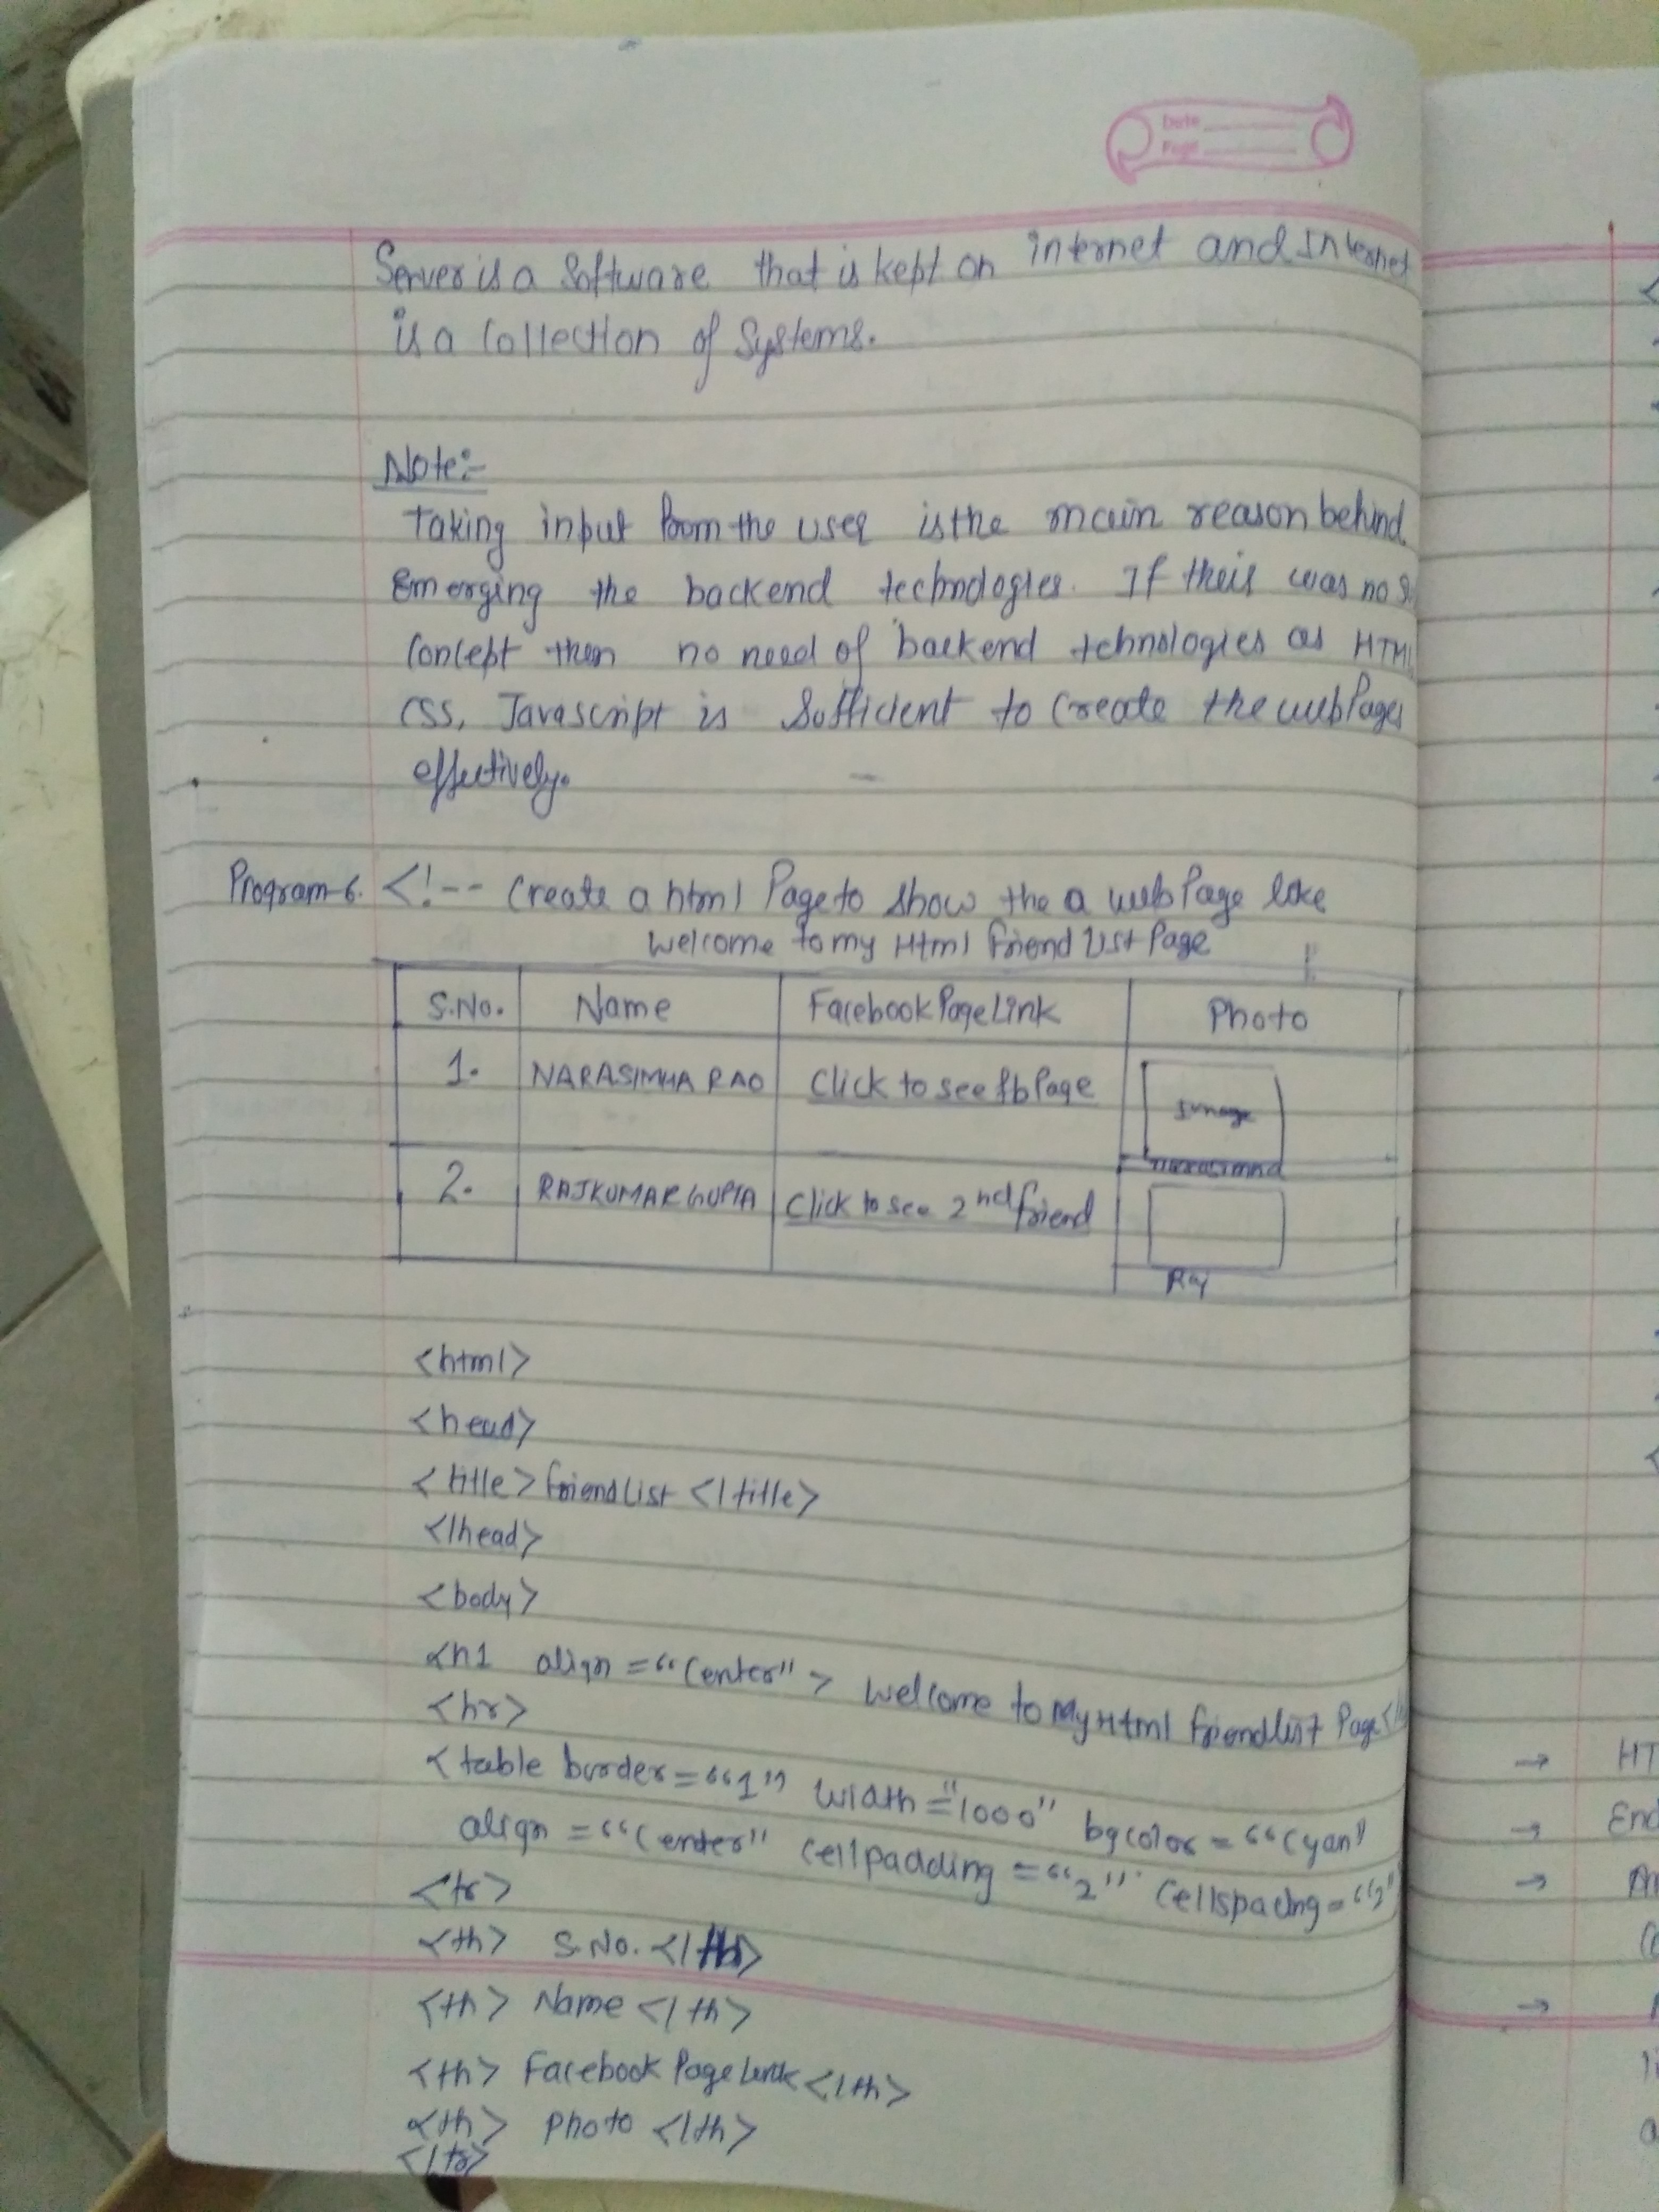 Date
Page
Server is a Software that is kept on internet and Internet
is a Collection of Systems.
Note:-
Taking input from the user is the main reason behind
Emerging the backend technologies. If their was no
Concept then no need of backend tehnologies as HTML
CSS, Javascript is Sufficient to Create the webPages
effectively.
Program-6. <!-- Create a html Page to show the a web Page like
Welcome to my Html Friend List Page
S.No. Name Facebook Page Link Photo
1. NARASIMHA RAO Click to see fb Page Image
narasimha
2. RAJKUMAR GUPTA Click to see 2nd friend
Raj
<html>
<head>
<title> Friend List </title>
</head>
<body>
<h1 align = "Center" > Welcome to My Html Friendlist Page
<hr>
<table border = "1" width = "1000" bgcolor = "Cyan"
align = "Center" Cellpadding = "2" Cellspacing = "2"
<tr>
<th> S.No. </th>
<th> Name </th>
<th> Facebook Page Link </th>
<th> Photo </th>
</tr>
→ HT
→ End
→
→